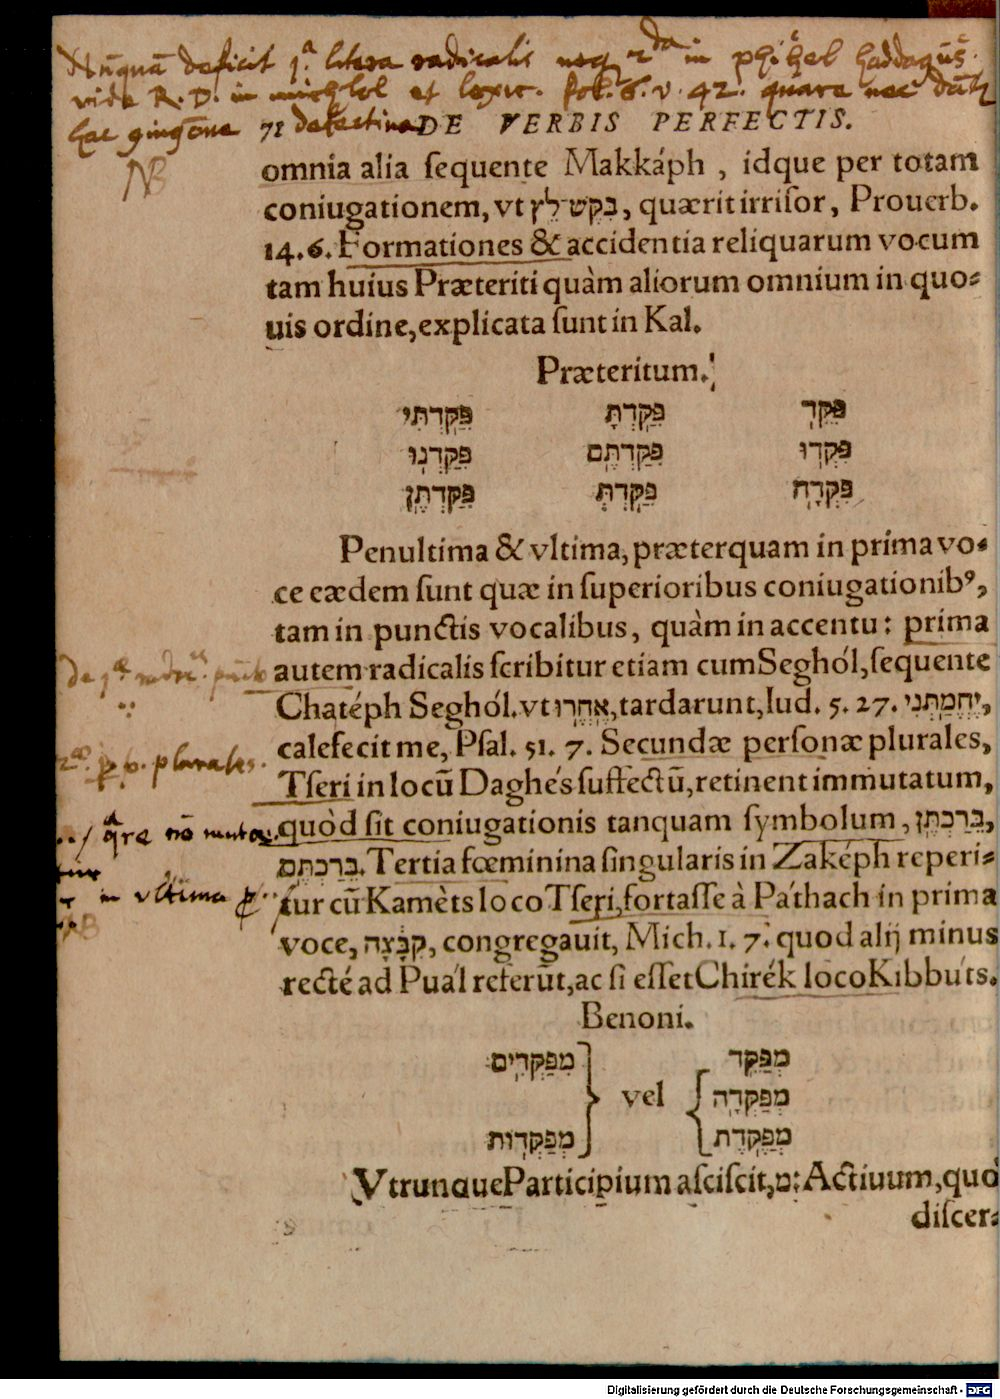 Nunquã deficit 1ᵃ litera radicalis neq 2da in
vide R. D. in michlol et lexic. fol. 6. v. 42. quare nec
71 DE VERBIS PERFECTIS.
NB
omnia alia ſequente Makkáph, idque per totam
coniugationem, vt בִּקֶּשׁ־לֵץ, quærit irriſor, Prouerb.
14.6. Formationes & accidentia reliquarum vocum
tam huius Præteriti quàm aliorum omnium in quo⸗
uis ordine, explicata ſunt in Kal.
Præteritum.
פִּקֵּד פִּקַּדְתָּ פִּקַּדְתִּי
פִּקְּדוּ פִּקַּדְתֶּם פִּקַּדְנוּ
פִּקְּדָה פִּקַּדְתְּ פִּקַּדְתֶּן
Penultima & vltima, præterquam in prima vo⸗
ce eædem ſunt quæ in ſuperioribus coniugationibꝰ,
tam in punctis vocalibus, quàm in accentu: prima
autem radicalis ſcribitur etiam cum Seghól, ſequente
Chatéph Seghól. vt אֶֽחֱרוּ, tardarunt, Iud. 5. 27. יֶחֱמַתְנִי,
calefecit me, Pſal. 51. 7. Secundæ perſonæ plurales,
plurales.
Tſeri in locũ Daghés ſuffectũ, retinent immutatum,
quòd ſit coniugationis tanquam ſymbolum, בֵּרַכְתֶּן,
בֵּרַכְתֶּם. Tertia fœminina ſingularis in Zaképh reperi⸗
in vltima
tur cũ Kamèts loco Tſeri, fortaſſe à Páthach in prima
voce, קִבָּצָה, congregauit, Mich. 1. 7. quod alij minus
recté ad Puál referũt, ac ſi eſſet Chirék loco Kibbúts.
Benoni.
מְפַקֵּד
מְפַקְּדָה
מְפַקֶּדֶת
vel
מְפַקְּדִים
מְפַקְּדוֹת
Vtrunque Participium aſciſcit, מ: Actiuum, quo
diſcer⸗
Digitalisierung gefördert durch die Deutsche Forschungsgemeinschaft - DFG